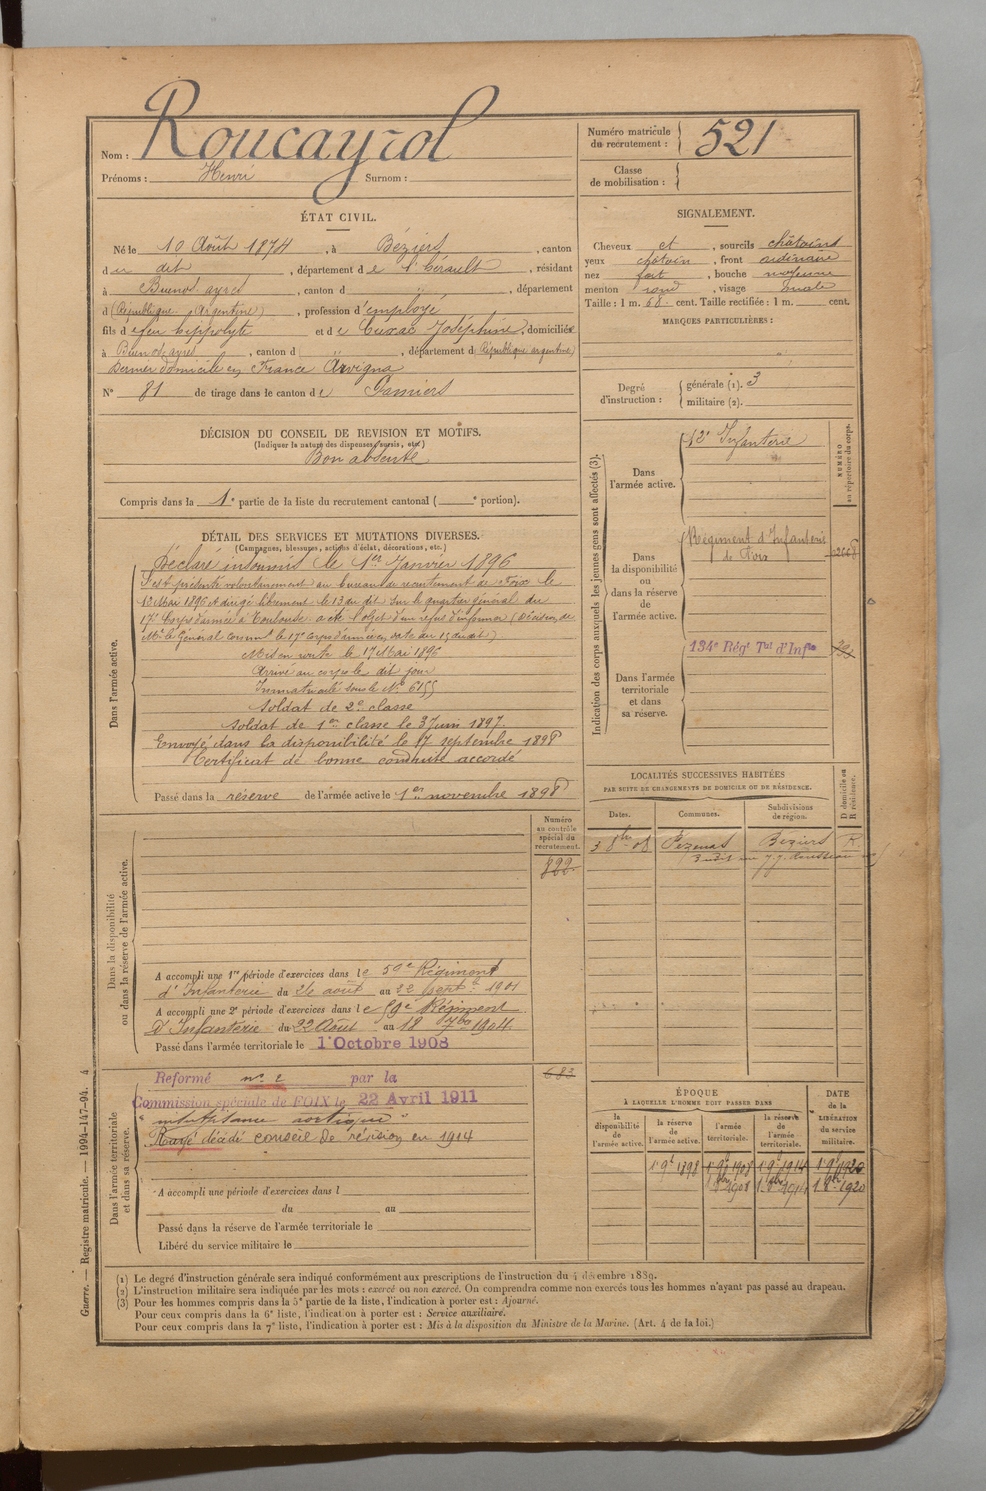 Nom : Roucayrol
Prénoms : Henri Surnom :
Numéro matricule du recrutement : 521
Classe de mobilisation :
ÉTAT CIVIL.
Né le 10 Août 1874, à Béziers, canton
du dit, département de l'Hérault, résidant
à Buenos ayres, canton d , département
d (République Argentine), profession d'employé
fils d efeu hippolyte et de Cuxac Joséphine, domiciliés
à Buenos ayres, canton d , département d (République argentine)
Dernier domicile en France Arvigna
N° 81 de tirage dans le canton de Pamiers
SIGNALEMENT.
Cheveux et , sourcils châtains
yeux châtain , front ordinaire
nez fort , bouche moyenne
menton rond , visage ovale
Taille : 1 m. 68 cent. Taille rectifiée : 1 m. cent.
MARQUES PARTICULIÈRES :
Degré d'instruction : générale (1). 3
militaire (2).
DÉCISION DU CONSEIL DE REVISION ET MOTIFS.
(Indiquer la nature des dispenses, sursis, etc.)
Bon absent
Compris dans la 1e partie de la liste du recrutement cantonal ( e portion).
DÉTAIL DES SERVICES ET MUTATIONS DIVERSES.
(Campagnes, blessures, actions d'éclat, décorations, etc.)
Dans l'armée active.
Déclaré insoumis le 1er Janvier 1896
S'est présenté volontairement au bureau de recrutement de Foix le
12 Mai 1896 et dirigé librement le 13 du dit sur le quartier général du
17e Corps d'armée à Toulouse a été l'objet d'un refus d'informer (Décision de
Mr le Général Commt le 17e Corps d'armée, date du 15 du dit)
Mis en route le 17 Mai 1896
Arrivé au corps le dit jour
Immatriculé sous le N° 6155
Soldat de 2e classe
Soldat de 1re classe le 3 Juin 1897.
Envoyé dans la disponibilité le 17 septembre 1898
Certificat de bonne conduite accordé
Passé dans la réserve de l'armée active le 1er novembre 1898
Indication des corps auxquels les jeunes gens sont affectés (3).
NUMÉRO au répertoire du corps.
Dans l'armée active.
12e Infanterie
Dans la disponibilité ou dans la réserve de l'armée active.
Régiment d'Infanterie
de Foix
Dans l'armée territoriale et dans sa réserve.
134e Régt Tal d'Infie
LOCALITÉS SUCCESSIVES HABITÉES
PAR SUITE DE CHANGEMENTS DE DOMICILE OU DE RÉSIDENCE.
Dates. Communes. Subdivisions de région. D domicile ou R résidence.
3 8bre 08 Pézenas Béziers R.
Dans la disponibilité ou dans la réserve de l'armée active.
Numéro au contrôle spécial du recrutement.
822
A accompli une 1re période d'exercices dans le 59e Régiment
d'Infanterie du 26 août au 22 Septe 1901
A accompli une 2e période d'exercices dans le 59e Régiment
D'Infanterie du 22 Août au 18 7bre 1904
Passé dans l'armée territoriale le 1 Octobre 1908
Dans l'armée territoriale et dans sa réserve.
683
Reformé n° 2 par la
Commission spéciale de FOIX le 22 Avril 1911
Rayé décidé conseil de révision en 1914
A accompli une période d'exercices dans l
du au
Passé dans la réserve de l'armée territoriale le
Libéré du service militaire le
ÉPOQUE
À LAQUELLE L'HOMME DOIT PASSER DANS
la disponibilité de l'armée active. la réserve de l'armée active. l'armée territoriale. la réserve de l'armée territoriale. DATE de la LIBÉRATION du service militaire.
1 9bre 1898 1 9bre 1908 1 9bre 1914 1 9bre 1920
1 8bre 1908 1 8bre 1914 1 8bre 1920
(1) Le degré d'instruction générale sera indiqué conformément aux prescriptions de l'instruction du 4 décembre 1889.
(2) L'instruction militaire sera indiquée par les mots : exercé ou non exercé. On comprendra comme non exercés tous les hommes n'ayant pas passé au drapeau.
(3) Pour les hommes compris dans la 5e partie de la liste, l'indication à porter est : Ajourné.
Pour ceux compris dans la 6e liste, l'indication à porter est : Service auxiliaire.
Pour ceux compris dans la 7e liste, l'indication à porter est : Mis à la disposition du Ministre de la Marine. (Art. 4 de la loi.)
Guerre. — Registre matricule. — 1994-147-94. 4